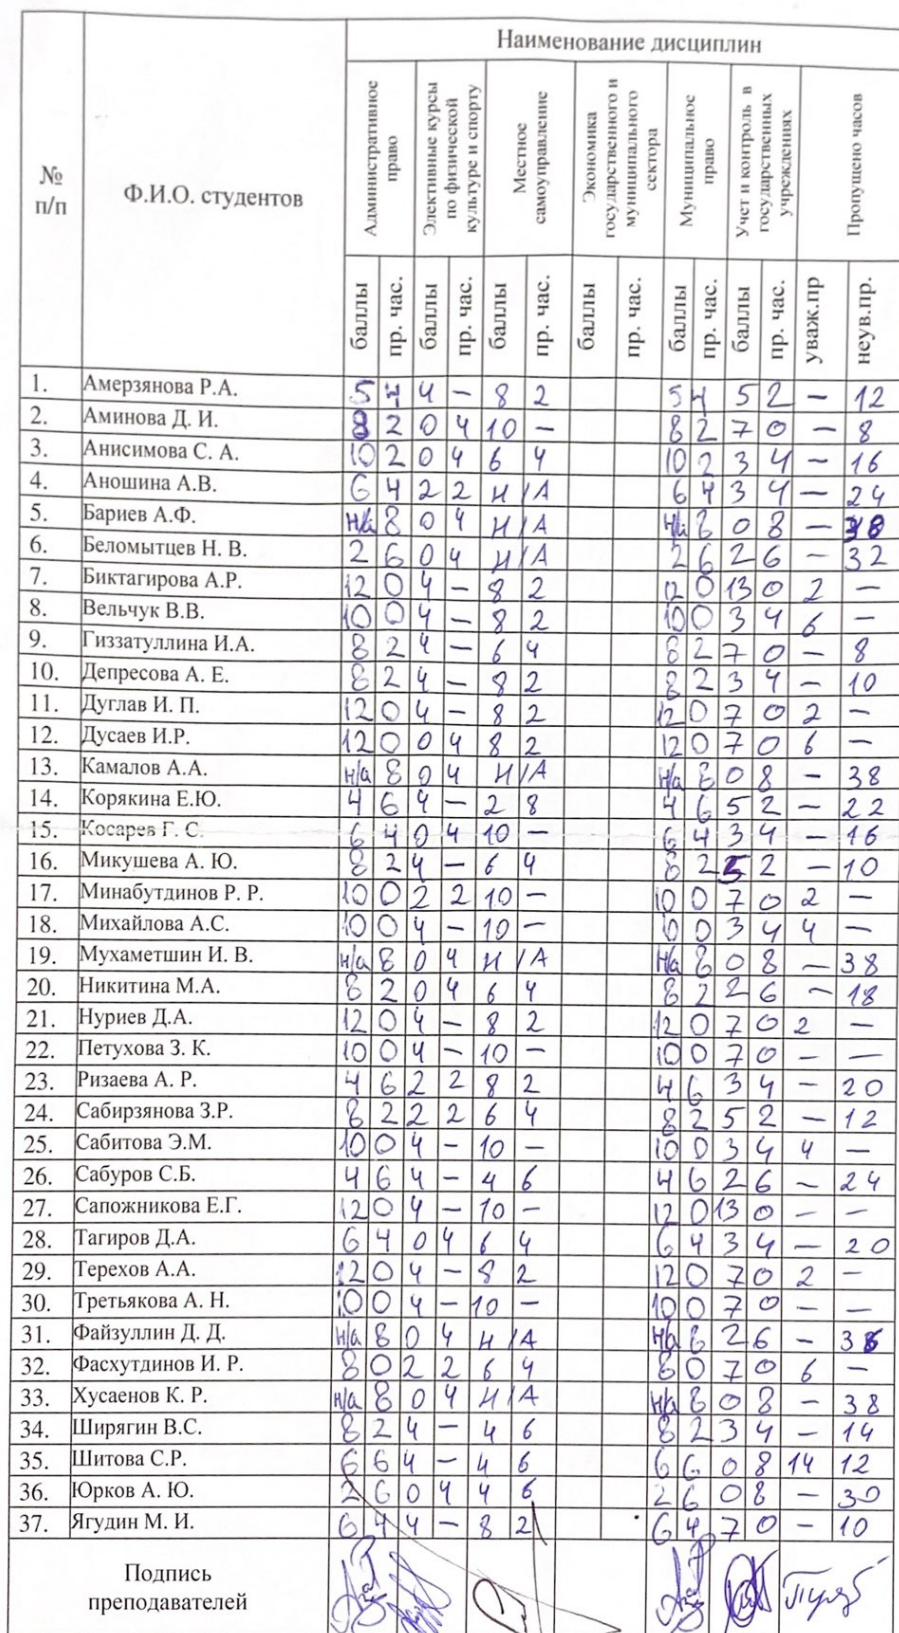 Наименование дисциплин
№ п/п Ф.И.О. студентов Административное право Элективные курсы по физической культуре и спорту Местное самоуправление Экономика государственного и муниципального сектора Муниципальное право Учет и контроль в государственных учреждениях Пропущено часов
баллы пр. час. баллы пр. час. баллы пр. час. баллы пр. час. баллы пр. час. баллы пр. час. уваж.пр неув.пр.
1. Амерзянова Р.А. 5 4 4 – 8 2 5 4 5 2 – 12
2. Аминова Д. И. 8 2 0 4 10 – 8 2 7 0 – 8
3. Анисимова С. А. 10 2 0 4 6 4 10 2 3 4 – 16
4. Аношина А.В. 6 4 2 2 Н/А 6 4 3 4 – 24
5. Бариев А.Ф. н/а 8 0 4 Н/А н/а 8 0 8 – 38
6. Беломытцев Н. В. 2 6 0 4 Н/А 2 6 2 6 – 32
7. Биктагирова А.Р. 12 0 4 – 8 2 12 0 13 0 2 –
8. Вельчук В.В. 10 0 4 – 8 2 10 0 3 4 6 –
9. Гиззатуллина И.А. 8 2 4 – 6 4 8 2 7 0 – 8
10. Депресова А. Е. 8 2 4 – 8 2 8 2 3 4 – 10
11. Дуглав И. П. 12 0 4 – 8 2 12 0 7 0 2 –
12. Дусаев И.Р. 12 0 0 4 8 2 12 0 7 0 6 –
13. Камалов А.А. н/а 8 0 4 Н/А н/а 8 0 8 – 38
14. Корякина Е.Ю. 4 6 4 – 2 8 4 6 5 2 – 22
15. Косарев Г. С. 6 4 0 4 10 – 6 4 3 4 – 16
16. Микушева А. Ю. 8 2 4 – 6 4 8 2 5 2 – 10
17. Минабутдинов Р. Р. 10 0 2 2 10 – 10 0 7 0 2 –
18. Михайлова А.С. 10 0 4 – 10 – 10 0 3 4 4 –
19. Мухаметшин И. В. н/а 8 0 4 Н/А н/а 8 0 8 – 38
20. Никитина М.А. 8 2 0 4 6 4 8 2 2 6 – 18
21. Нуриев Д.А. 12 0 4 – 8 2 12 0 7 0 2 –
22. Петухова З. К. 10 0 4 – 10 – 10 0 7 0 – –
23. Ризаева А. Р. 4 6 2 2 8 2 4 6 3 4 – 20
24. Сабирзянова З.Р. 8 2 2 2 6 4 8 2 5 2 – 12
25. Сабитова Э.М. 10 0 4 – 10 – 10 0 3 4 4 –
26. Сабуров С.Б. 4 6 4 – 4 6 4 6 2 6 – 24
27. Сапожникова Е.Г. 12 0 4 – 10 – 12 0 13 0 – –
28. Тагиров Д.А. 6 4 0 4 6 4 6 4 3 4 – 20
29. Терехов А.А. 12 0 4 – 8 2 12 0 7 0 2 –
30. Третьякова А. Н. 10 0 4 – 10 – 10 0 7 0 – –
31. Файзуллин Д. Д. н/а 8 0 4 Н/А н/а 8 2 6 – 36
32. Фасхутдинов И. Р. 8 0 2 2 6 4 8 0 7 0 6 –
33. Хусаенов К. Р. н/а 8 0 4 Н/А н/а 8 0 8 – 38
34. Ширягин В.С. 8 2 4 – 4 6 8 2 3 4 – 14
35. Шитова С.Р. 6 6 4 – 4 6 6 6 0 8 14 12
36. Юрков А. Ю. 2 6 0 4 4 6 2 6 0 8 – 30
37. Ягудин М. И. 6 4 4 – 8 2 6 4 7 0 – 10
Подпись
преподавателей